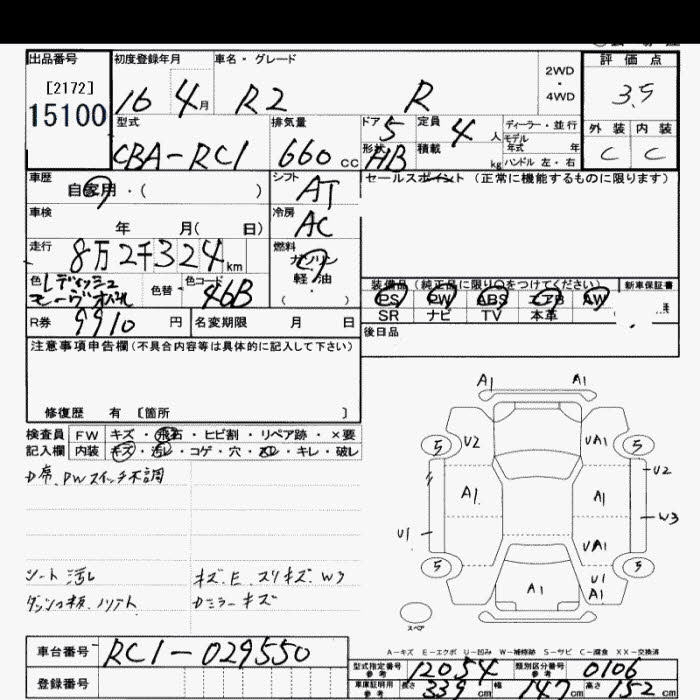 出品番号
[2172]
15100
初度登録年月
16 4月
車名・グレード
R2 R
2WD
・
4WD
評価点
3.5
外装 内装
C C
型式
CBA-RC1
排気量
660 CC
ドア 5
定員 4人
形状 HB
積載 kg
ディーラー・並行
モデル
年式 年
ハンドル 左・右
車歴
自家用・( )
シフト AT
セールスポイント (正常に機能するものに限ります)
車検
年 月( 日)
冷房 AC
走行
8万2千324km
燃料
ガソリン
軽・油
( )
色 Lディッシュ
色替
色コード 46B
装備品(純正品に限り○をつけてください)
新車保証書
PS PW ABS エアB AW
SR ナビ TV 本革
R券 9910円
名変期限 月 日
後日品
注意事項申告欄(不具合内容等は具体的に記入して下さい)
修復歴 有 [箇所 ]
検査員 FW キズ・飛石・ヒビ割・リペア跡・×要
記入欄 内装 キズ・汚レ・コゲ・穴・スレ・キレ・破レ
D席、PWスイッチ不調
シート汚レ
キズ、E、スリキズ、W3
Dミラーキズ
A1 A1
5 U2 UA1 5
U2
A1 A1
W3
U1
UA1
5 A1 U1 5
A1
スペア
A-キズ E-エクボ U-凹み W-補修跡 S-サビ C-腐食 XX-交換済
車台番号 RC1-029550
登録番号
型式指定番号
参考 12054
類別区分番号
参考 0106
車庫証明用
参考 長さ 339cm 幅 147cm 高さ 152cm